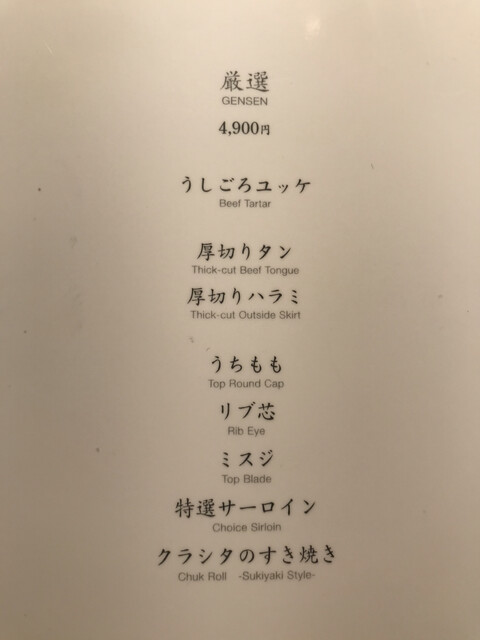 厳選
GENSEN
4,900円
うしごろユッケ
Beef Tartar
厚切りタン
Thick-cut Beef Tongue
厚切りハラミ
Thick-cut Outside Skirt
うちもも
Top Round Cap
リブ芯
Rib Eye
ミスジ
Top Blade
特選サーロイン
Choice Sirloin
クラシタのすき焼き
Chuk Roll -Sukiyaki Style-